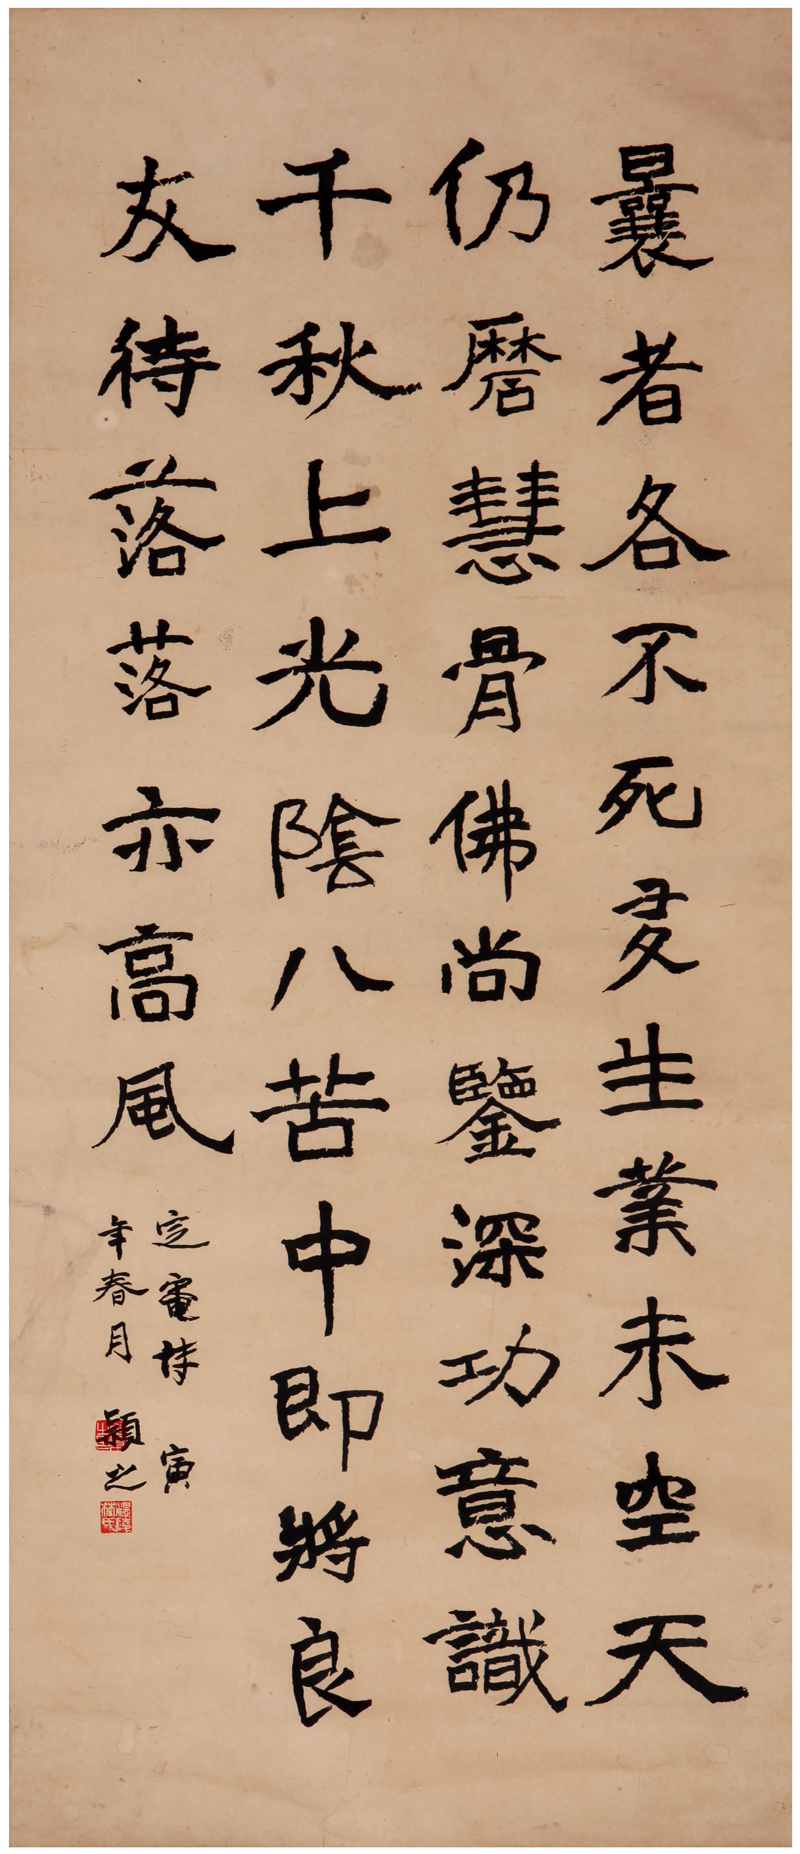 曩者各不死受生業未空天
仍磨慧骨佛尚鑒深功意識
千秋上光陰八苦中即將良
友待落落亦高風
定盦詩 寅
年春月 穎之